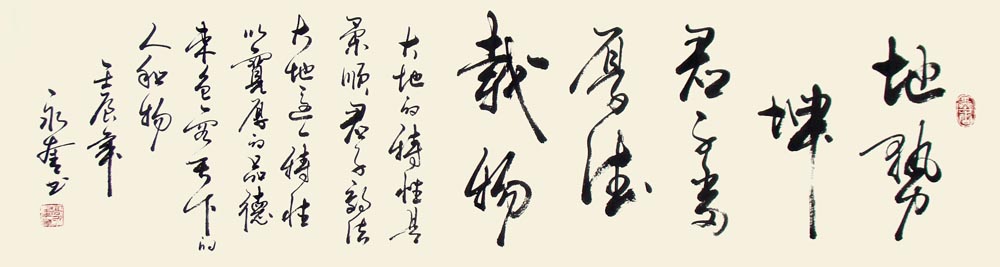 地勢
坤
君子以
厚德
載物
大地的特性是
柔順君子效法
大地这一特性
以寬厚的品德
来包容天下的
人和物
壬辰年
永奎书